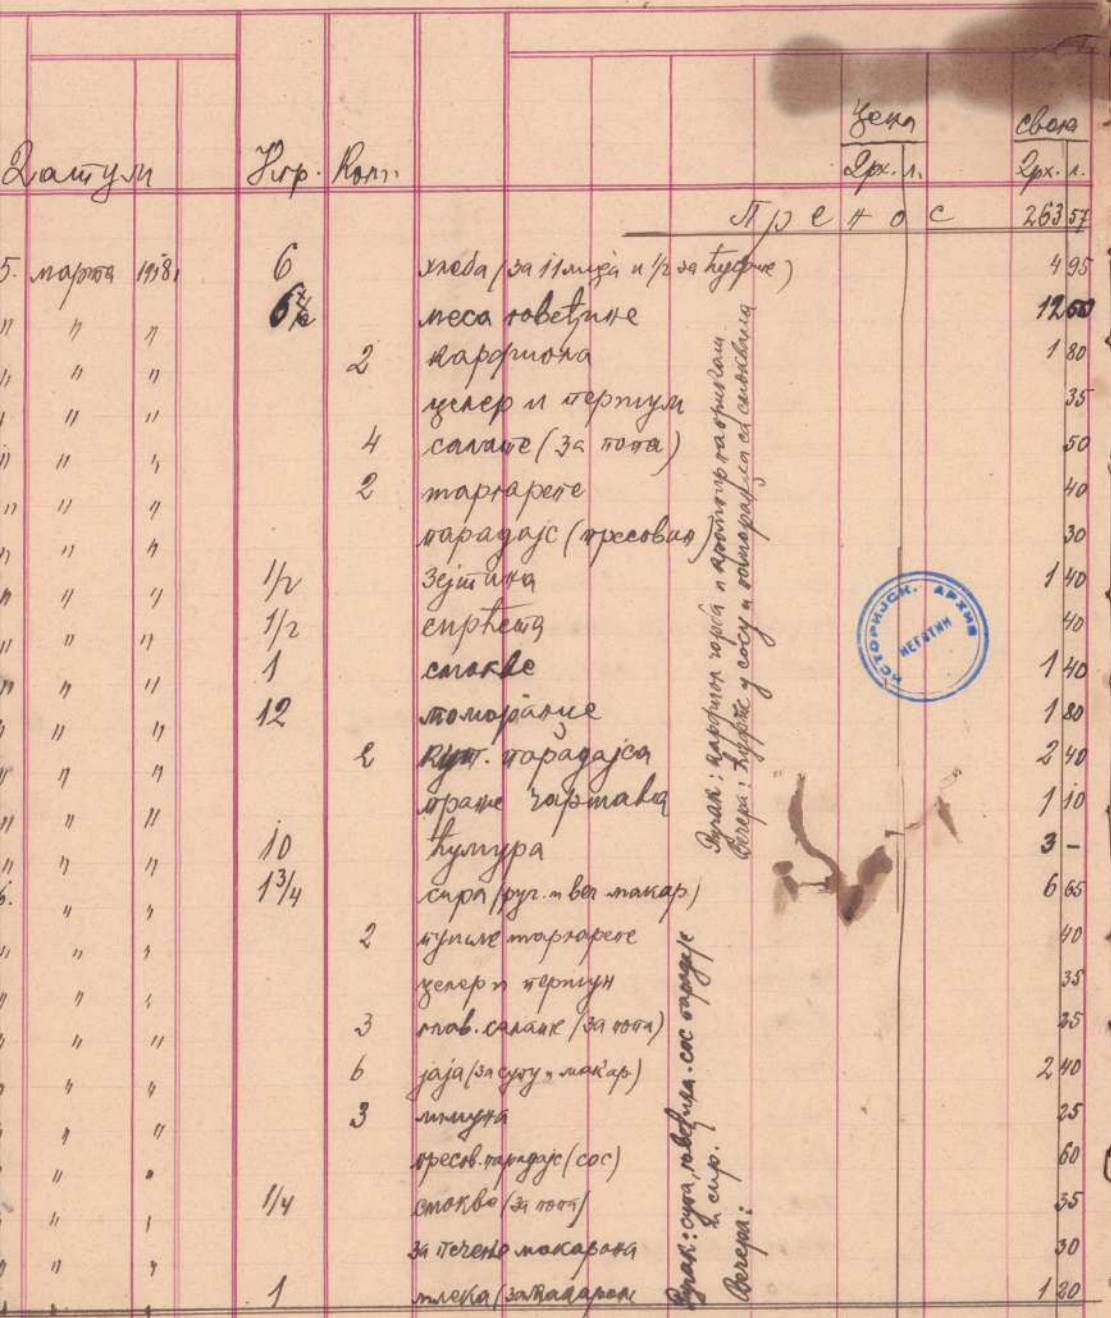 Цена
свега
Датум
Кгр.
Ком.
Дрх. п.
Дрх. п.
Пренос 263 57
5. марта 1918. 6 хлеба (за 11 лица и 1/2 за ћурчиће) 4 95
" " " 6 1/2 меса говеђине 12 60
" " " 2 карфиола 1 80
" " " целер и першун 35
" " " 4 салате (за попа) 50
" " " 2 шаргарепе 40
" " " парадајс (пресован) 30
" " " 1/2 зејтина 1 40
" " " 1/2 сирћета 40
" " " 1 смокве 1 40
" " " 12 поморанџе 1 80
" " " 2 кут. парадајса 2 40
" " " прање чаршава 1 10
" " " 10 ћумура 3 -
6. " " 1 3/4 сира (руч. и веч. макар) 6 65
" " " 2 шаргарепе 40
" " " целер и першун 35
" " " 3 глав. салате (за попа) 25
" " " 6 јаја (за супу и макар) 2 40
" " " 3 лимуна 25
" " " пресов. парадајс (сос) 60
" " " 1/4 смокве (за попа) 35
" " " за печење макарона 30
" " " 1 млека (за макароне 1 20
Ручак: карфиол чорба и
Вечера: у сосу и поморанџа са смоквама
Ручак: супа, говеђина. сос парадајс
и сир.
Вечера:
ИСТОРИЈСК. АРХИВ
НЕГОТИН